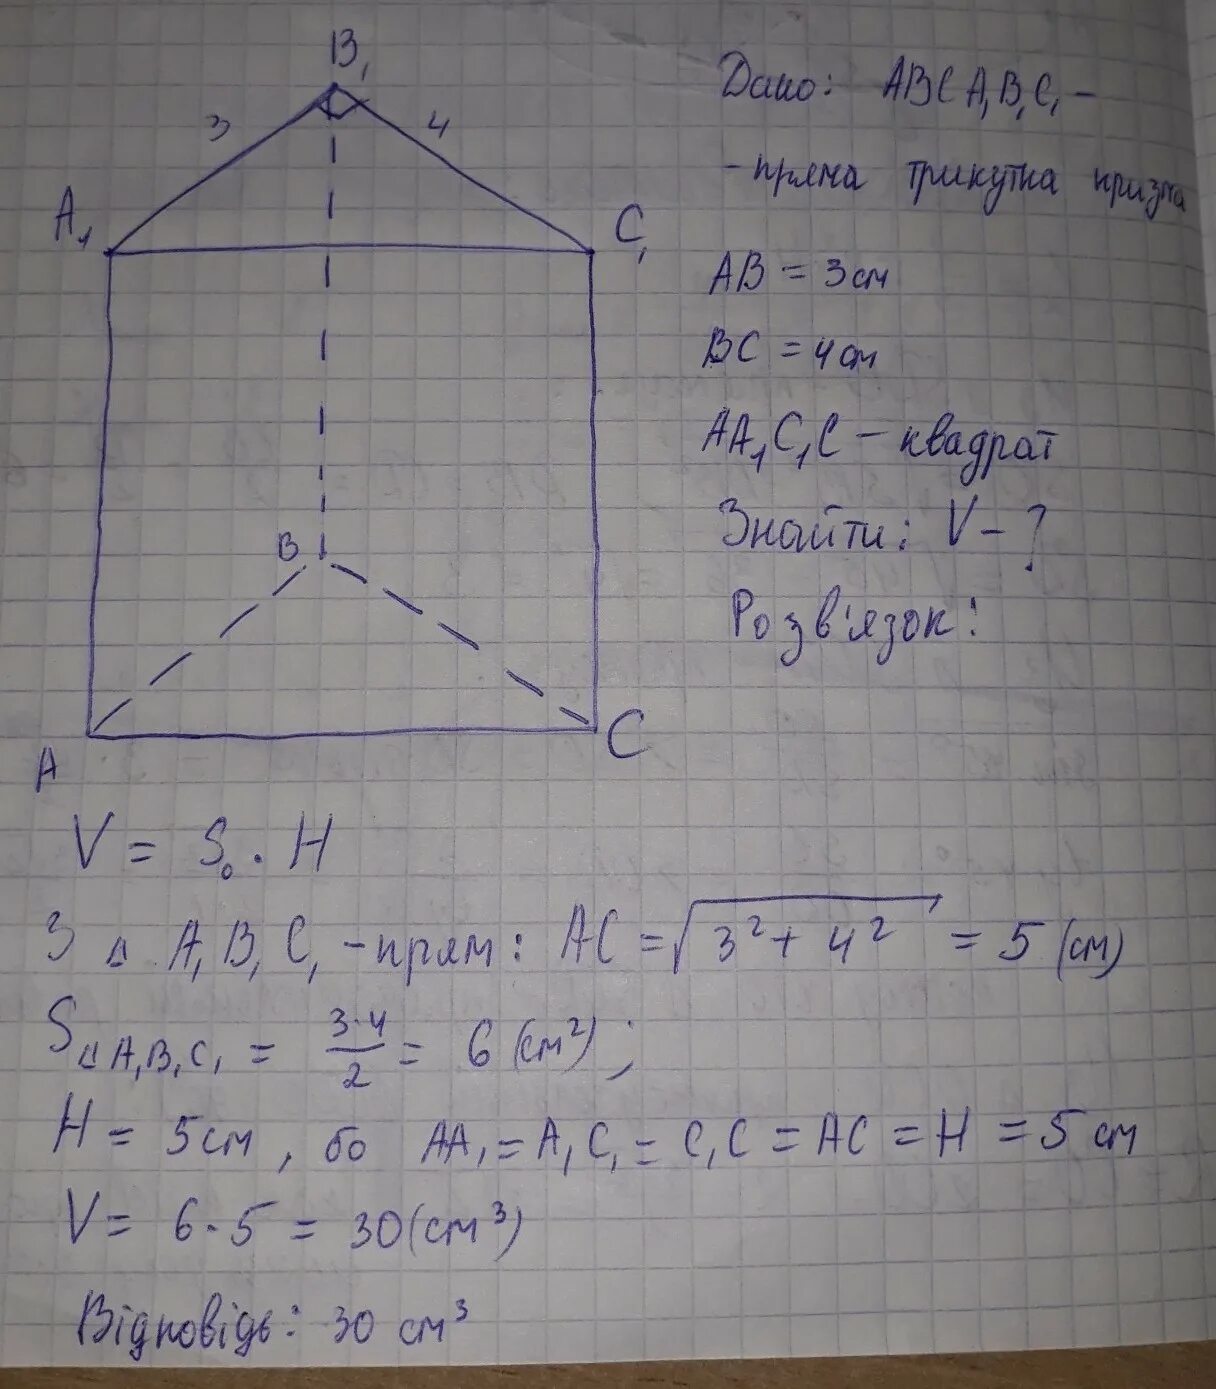 B₁
3
4
A₁
C₁
B
A
C
Дано: ABCA₁B₁C₁ -
- пряма трикутна призма
AB = 3 см
BC = 4 см
AA₁C₁C - квадрат
Знайти: V - ?
Розв'язок:
V = S₀ · H
З △ A₁B₁C₁ - прям: AC = √(3² + 4²) = 5 (см)
S△A₁B₁C₁ = 3·4/2 = 6 (см²);
H = 5 см, бо AA₁ = A₁C₁ = C₁C = AC = H = 5 см
V = 6 · 5 = 30 (см³)
Відповідь: 30 см³